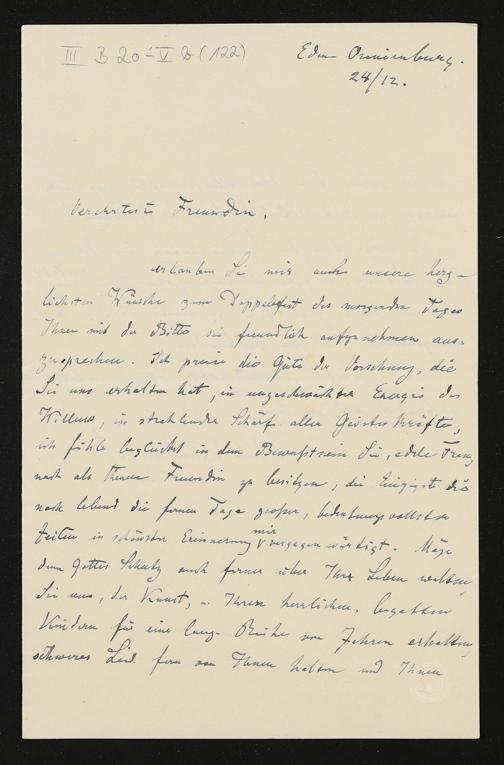 III B 20-V b (122)
Eden Oranienburg.
24/12.
Verehrteste Freundin,
erlauben Sie mir auch unsere herz-
lichsten Wünsche zum Doppelfest des morgenden Tages
Ihnen mit der Bitte sie freundlich aufzunehmen aus-
zusprechen. Ich preise die Güte der Vorsehung, die
Sie uns erhalten hat, in ungeschwächter Energie des
Willens, in strahlender Schärfe aller Geisteskräfte,
ich fühle beglückt in dem Bewußtsein Sie, edle Frau,
noch als theure Freundin zu besitzen, die Einzigste die
noch lebend die fernen Tage großer, bedeutungsvollster
Zeiten in schönster Erinnerung mir vergegenwärtigt. Möge
denn Gottes Schutz auch ferner über Ihrem Leben walten,
Sie uns, der Kunst, u. Ihren herrlichen, begabten
Kindern für eine lange Reihe von Jahren erhalten,
schweres Leid fern von Ihnen halten und Ihnen